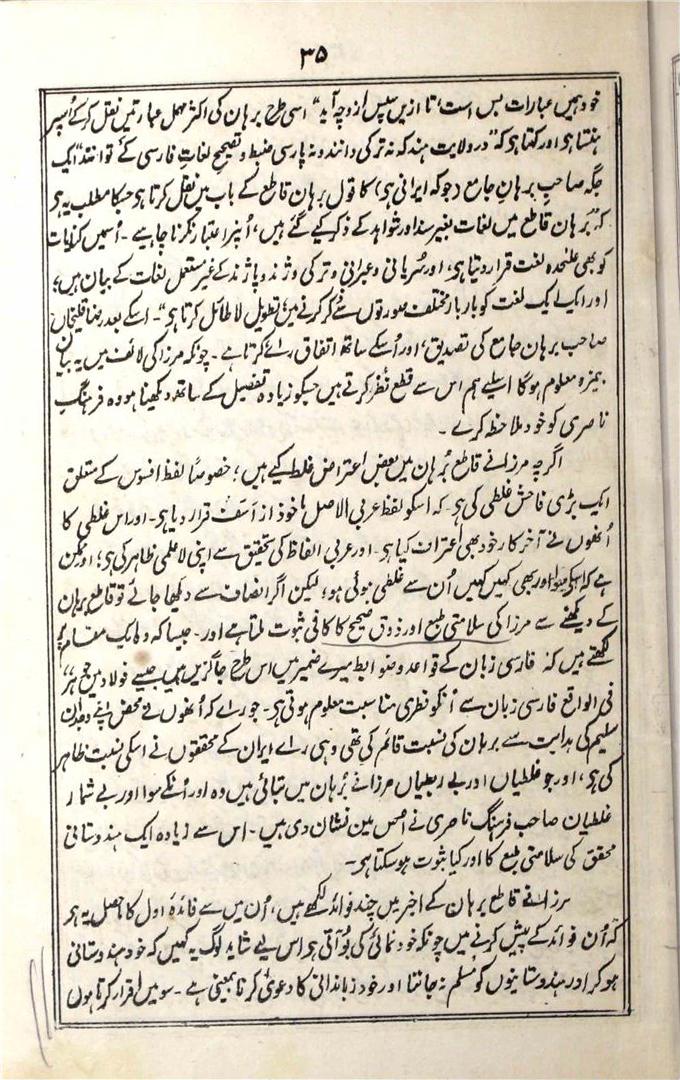 ۳۵
خود ہمیں عبارات بس است، تا ازیں سپس ازوچہ آید" اسی طرح برہان کی اکثر مہمل عبارتیں نقل کرکے اُسپر
ہنستا ہو اور کہتا ہو کہ "در ولایت ہند کہ نہ ترکی دانند و نہ پارسی ضبط و تصحیح لغاتِ فارسی کے توانند" ایک
جگہ صاحبِ برہانِ جامع (جو کہ ایرانی ہو) کا قول برہان قاطع کے باب میں نقل کرتا ہو جسکا مطلب یہ ہو
کہ "برہان قاطع میں لغات بغیر سند اور شواہد کے ذکر کیے گئے ہیں، اُنپر اعتبار نکرنا چاہیے۔ اُسمیں کنایات
کو بھی علٰحدہ لغت قرار دیتا ہو، اور سُریانی و عبرانی و ترکی و ژند و پاژند کے غیر مستعمل لغات کے بیان ہیں،
اور ایک ایک لغت کو بار بار مختلف صورتوں سے ذکر کرنے میں، تطویل لاطائل کرتا ہو"۔ اسکے بعد رضا قلیخاں
صاحب برہان جامع کی تصدیق، اور اُسکے ساتھ اتفاق رائے کرتا ہے۔ چونکہ مرزا کی لائف میں یہ بیان
بیمزہ معلوم ہوگا اسلیے ہم اس سے قطع نظر کرتے ہیں جسکو زیادہ تفصیل کے ساتھ دیکھنا ہو وہ فرہنگِ
ناصری کو خود ملاحظہ کرے۔
اگرچہ مرزا نے قاطع بُرہان میں بعض اعتراض غلط کیے ہیں؛ خصوصاً لفظ افسوس کے متعلق
ایک بڑی فاحش غلطی کی ہو۔ کہ اسکو لفظ عربی الاصل ماخوذ از اَسَفْ قرار دیا ہو۔ اور اس غلطی کا
اُنھوں نے آخر کار خود بھی اعتراف کیا ہو۔ اور عربی الفاظ کی تحقیق سے اپنی لاعلمی ظاہر کی ہو؛ اور ممکن
ہے کہ اسکے سوا اور بھی کہیں کہیں اُن سے غلطی ہوئی ہو؛ لیکن اگر انصاف سے دیکھا جائے تو قاطع برہان
کے دیکھنے سے مرزا کی سلامتی طبع اور ذوق صحیح کا کافی ثبوت ملتا ہے اور۔ جیسا کہ وہ ایک مقام پر
لکھتے ہیں کہ فارسی زبان کے قواعد و ضوابط میرے ضمیر میں اس طرح جاگزیں ہیں جیسے فولاد میں جوہر؛
فی الواقع فارسی زبان سے اُنکو فطری مناسبت معلوم ہوتی ہو۔ جو رائے کہ اُنھوں نے محض اپنے وجدان
سلیم کی ہدایت سے برہان کی نسبت قائم کی تھی وہی رائے ایران کے محققوں نے اسکی نسبت ظاہر
کی ہو، اور جو غلطیاں اور بے ربطیاں مرزا نے بُرہان میں بتائی ہیں وہ اور اُنکے سوا اور بے شمار
غلطیاں صاحب فرہنگ ناصری نے اُسمیں نشان دی ہیں۔ اس سے زیادہ ایک ہندوستانی
محقق کی سلامتی طبع کا اور کیا ثبوت ہوسکتا ہو۔
مرزا نے قاطع برہان کے اخیر میں چند فوائد لکھے ہیں، اُن میں سے فائدۂ اول کا ماحصل یہ ہو
کہ اُن فوائد کے پیش کرنے میں چونکہ خودنمائی کی بُو آتی ہو اس لیے شاید لوگ یہ کہیں کہ خود ہندوستانی
ہوکر اور ہندوستانیوں کو مسلم نہ جاننا اور خود زباندانی کا دعویٰ کرنا بیمعنی ہے۔ سو میں اقرار کرتا ہوں